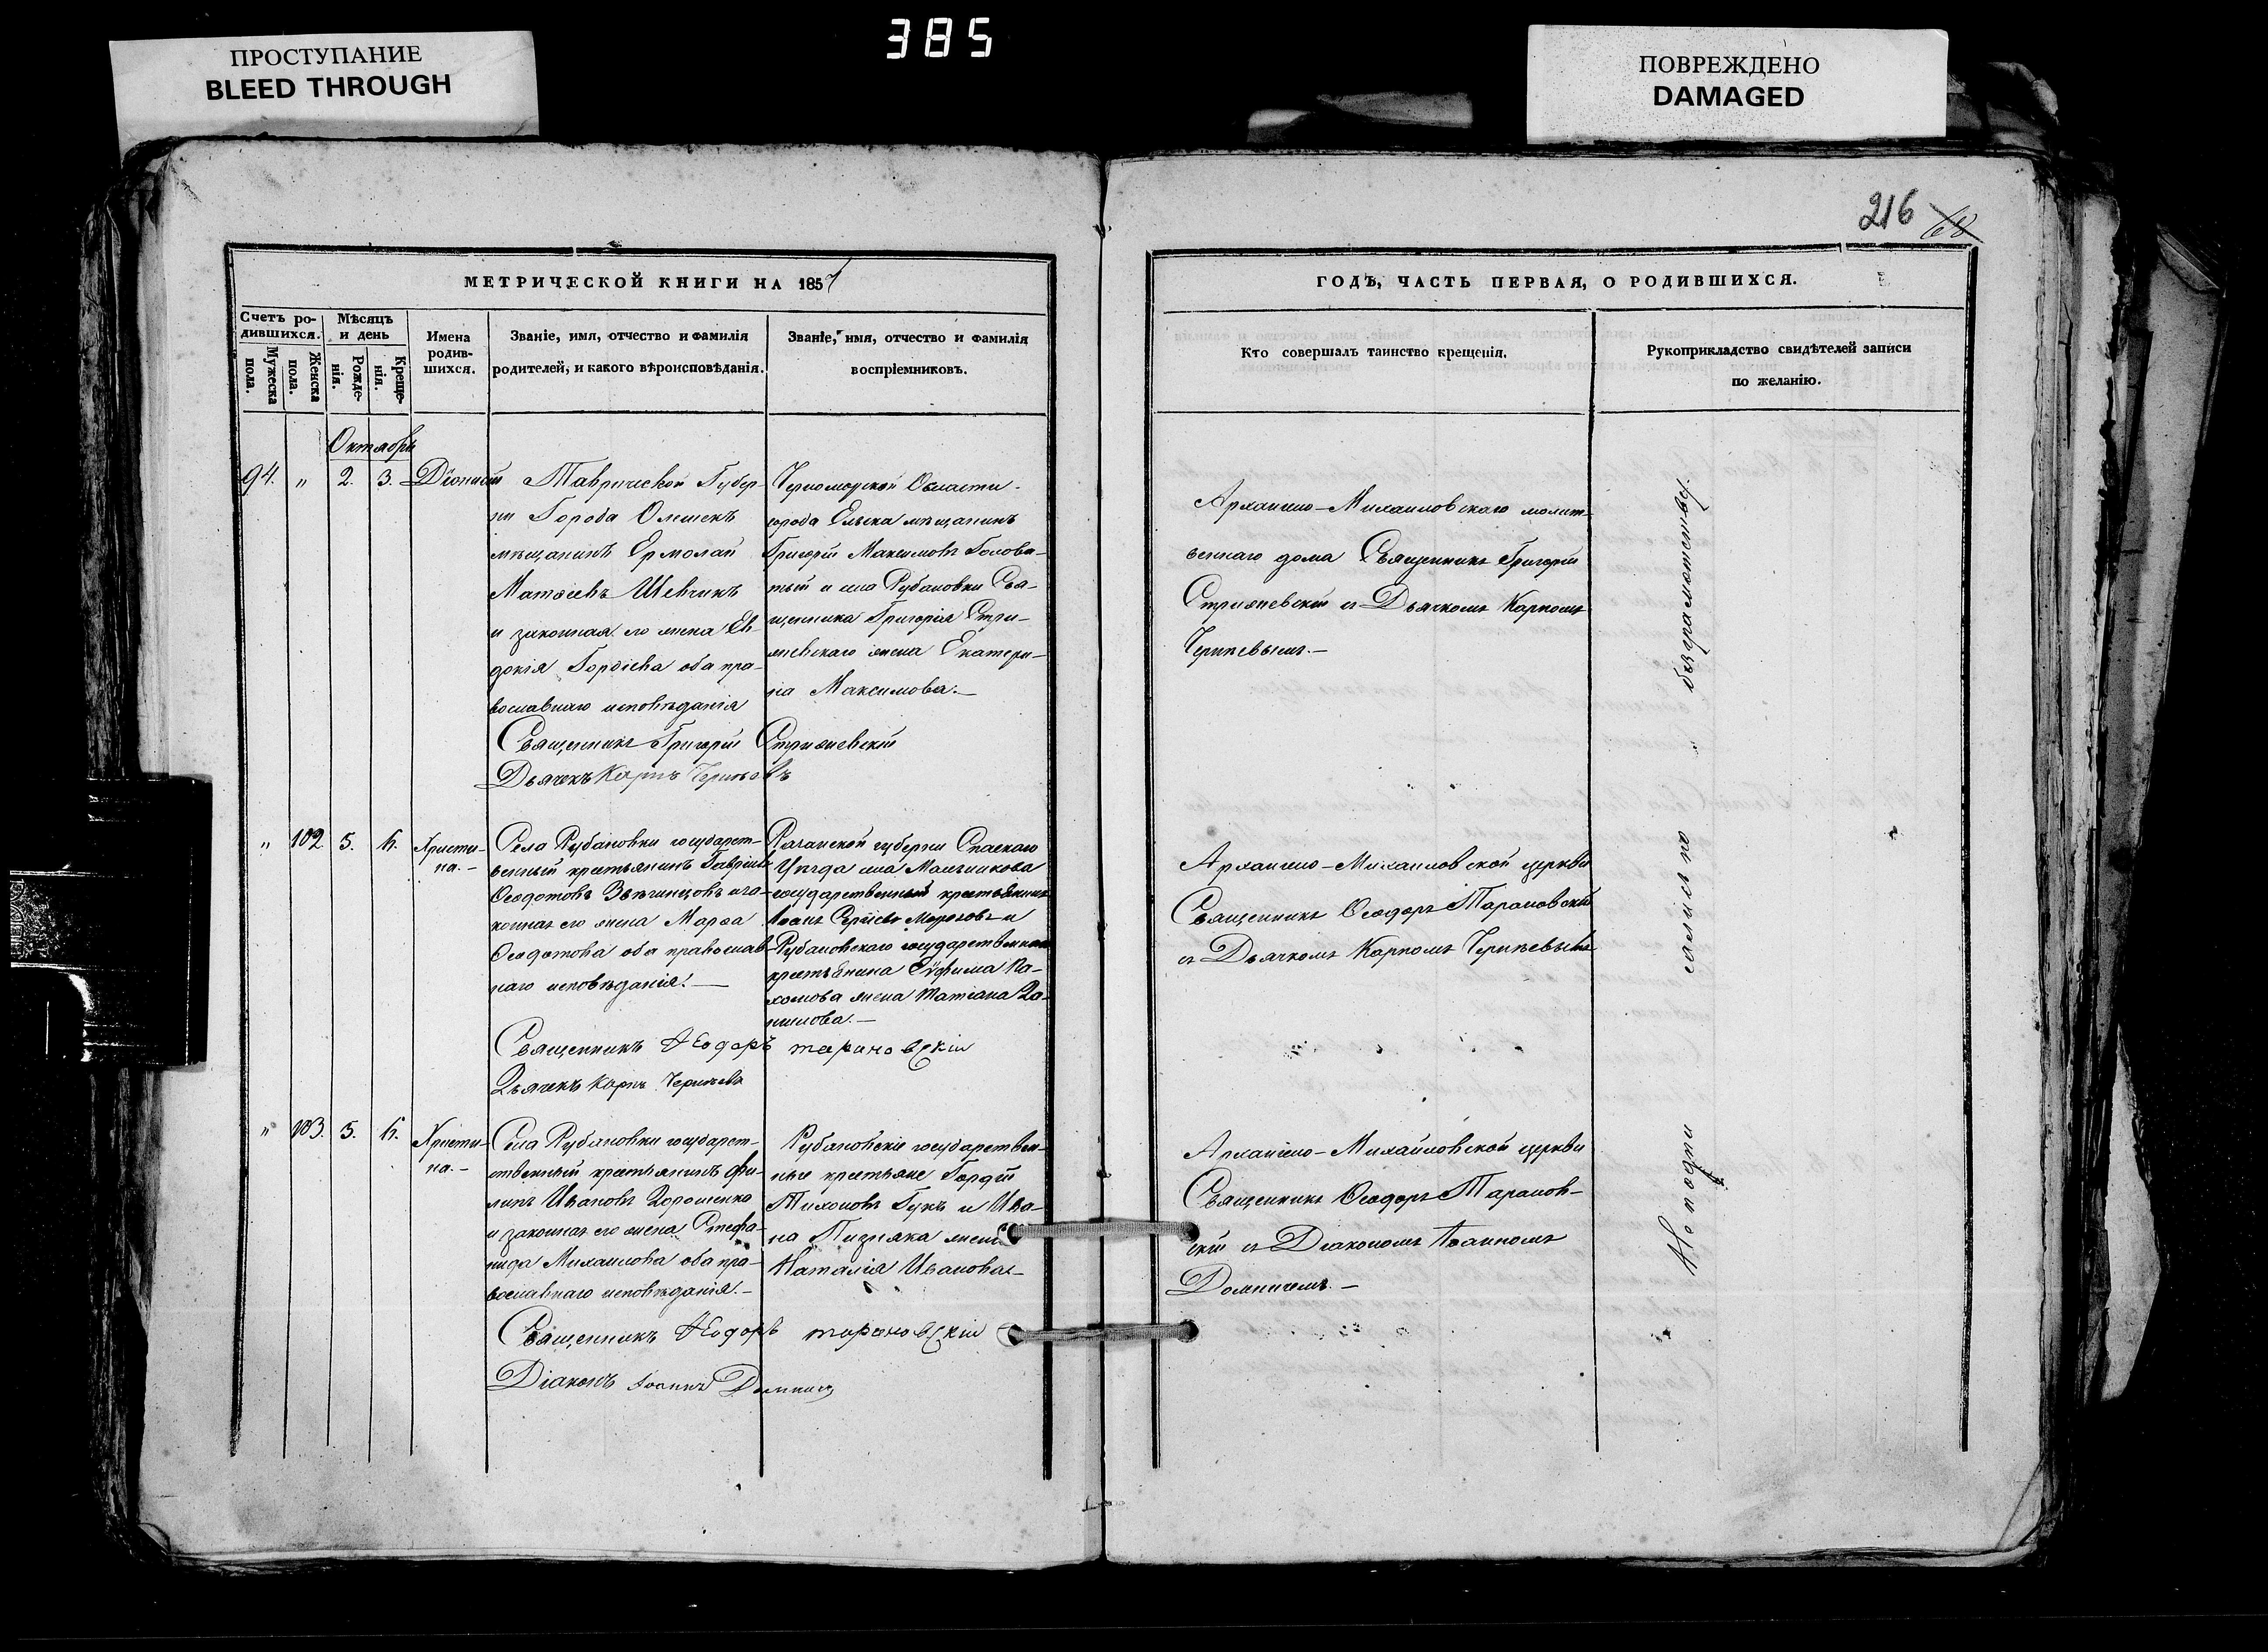 ПРОСТУПАНИЕ
BLEED THROUGH
385
ПОВРЕЖДЕНО
DAMAGED
216 68
МЕТРИЧЕСКОЙ КНИГИ НА 1857
Счетъ ро-
дившихся.
Мужеска
пола.
Женска
пола.
Мѣсяцъ
и день
Рожде-
нія.
Креще-
нія.
Имена
родив-
шихся.
Званіе, имя, отчество и фамилія
родителей, и какого вѣроисповѣданія.
Званіе, имя, отчество и фамилія
воспріемниковъ.
Октябрь
94. „ 2. 3. Діонисій
Таврической Губер-
ніи Города Олешекъ
мѣщанинъ Ермолай
Матѳіевъ Шевчикъ
и законная его жена Ев-
докія Гордіева оба пра-
вославнаго исповѣданія
Черноморской Области
города Ейска мѣщанинъ
Григорій Максимовъ Голова-
тый и села Рубановки Свя-
щенника Григорія Стри-
жевскаго жена Екатери-
на Максимова.—
Священникъ Григорій Стрижевскій
Дьячекъ Карпъ
„ 102 5. 6. Христи-
на.—
Села Рубановки государст-
венный крестьянинъ Гавріилъ
Ѳеодотовъ и за-
конная его жена Марѳа
Ѳеодотова оба православ-
наго исповѣданія.—
Рязанской губерніи Спаскаго
Уѣзда села Мальчикова
государственный крестьянинъ
Іоанъ Сергіевъ Морозовъ и
Рубановскаго государственнаго
крестьянина Еѵфима Па-
хомова жена Татіана
Священникъ Ѳеодоръ Тарановскій
Дьячекъ Карпъ
„ 103. 5. 6. Христи-
на.—
Села Рубановки государст-
ственный крестьянинъ Фи-
липъ Ивановъ Дорошенко
и законная его жена Стефа-
нида Михаилова оба пра-
вославнаго исповѣданія.—
Рубановскіе государствен-
ные крестьяне Гордій
Тихоновъ Гукъ и Ива-
на жена
Наталія Иванова—
Священникъ Ѳеодоръ Тарановскій
Діаконъ Іоаннъ
ГОДЪ, ЧАСТЬ ПЕРВАЯ, О РОДИВШИХСЯ.
Кто совершалъ таинство крещенія.
Рукоприкладство свидѣтелей записи
по желанію.
Архангело-Михаиловскаго молит-
веннаго дома Священникъ Григорій
Стрижевскій съ Дьячкомъ Карпомъ
Архангело-Михаиловской церкви
Священникъ Ѳеодоръ Тарановскій
съ Дьячкомъ Карпомъ
Архангело-Михайловской церкви
Священникъ Ѳеодоръ Таранов-
скій съ Діакономъ Іоанномъ
Не подпи
сались по
безграмотству.